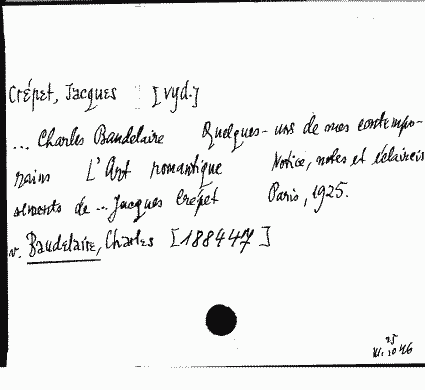 Crépet, Jacques [vyd.]
... Charles Baudelaire Quelques-uns de mes contempo-
rains L'Art romantique Notice, notes et éclaircis
sements de ... Jacques Crépet Paris, 1925.
v. Baudelaire, Charles [188447]
25